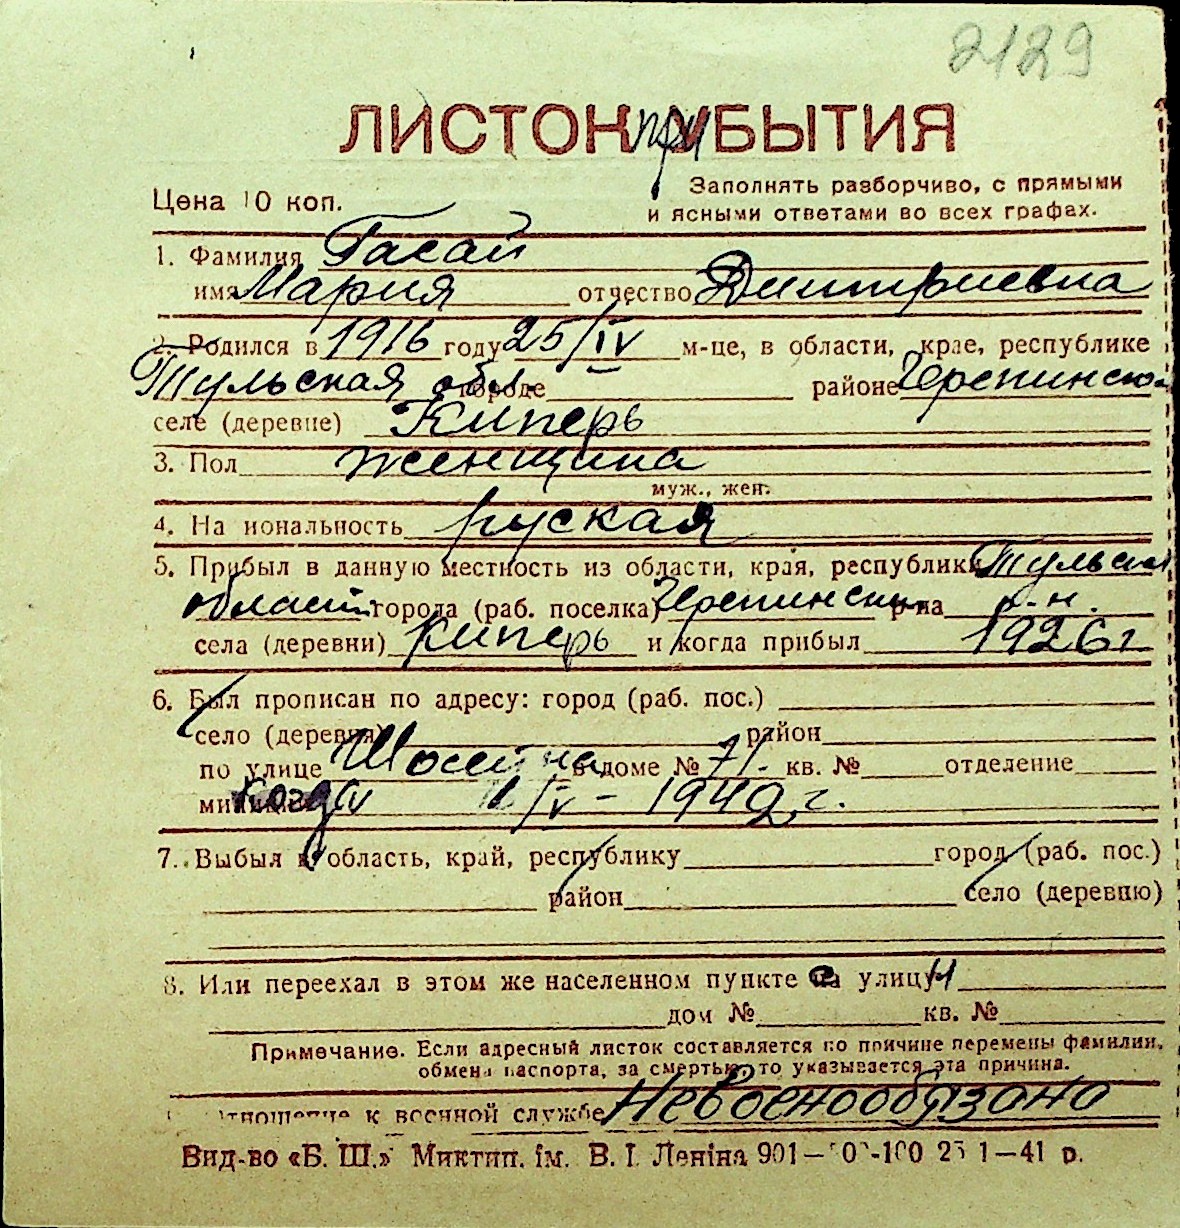 2129
ЛИСТОК при УБЫТИЯ
Цена 10 коп.
Заполнять разборчиво, с прямыми
и ясными ответами во всех графах.
1. Фамилия Гасай
имя Мария отчество Дмитриевна
2. Родился в 1916 году 25/IV м-це, в области, крае, республике
Тульская обл. городе районе Черепинско
селе (деревне) Киперь
3. Пол женщина
муж., жен.
4. На иональность руская
5. Прибыл в данную местность из области, края, республики Тульская
област города (раб. поселка) Черепинский р-на р-н.
села (деревни) Киперь и когда прибыл 1926 г
6. Был прописан по адресу: город (раб. пос.)
село (деревня) район
по улице Шосейна в доме № 71. кв. № отделение
когда 1/IV – 1942 г.
7. Выбыл в область, край, республику город (раб. пос.)
район село (деревню)
8. Или переехал в этом же населенном пункте с улицы
дом № кв. №
Примечание. Если адресный листок составляется по причине перемены фамилии,
обмена паспорта, за смертью, то указывается эта причина.
отношение к военной службе Невоенообязано
Вид-во «Б. Ш.» Миктип. ім. В. І. Леніна 901— 1—41 р.